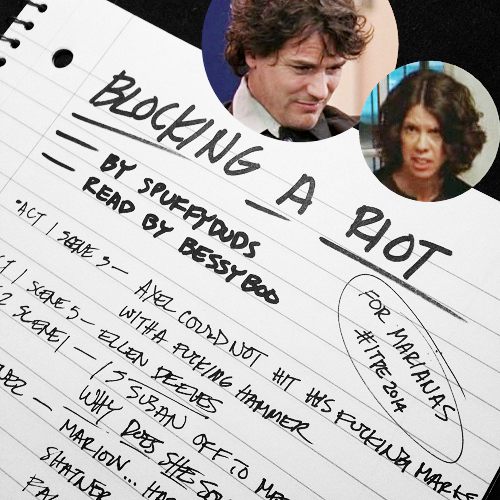 BLOCKING A RIOT
BY SPUFFYDUDS
READ BY BESSYBOO
FOR MARIANAS
#ITPE 2014
*ACT 1 SCENE 3 — AXEL COULD NOT HIT HIS FUCKING MARKS
WITH A FUCKING HAMMER
1 SCENE 5 — ELLEN DEEVES
2 SCENE 1 — IS SUSAN OFF TO
WHY DOES SHE
MARION...
SHATNER